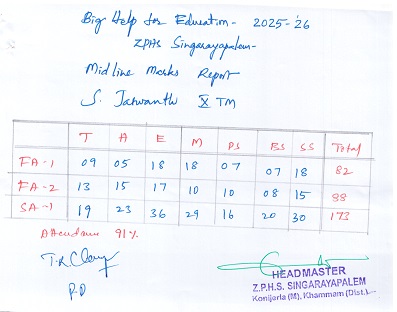 Big Help for Education - 2025-'26
ZPHS Singarayapalem
Midline Marks Report
S. Jaswanth X TM
T H E M PS BS SS Total
FA-1 09 05 18 18 07 07 18 82
FA-2 13 15 17 10 10 08 15 88
SA-1 19 23 36 29 16 20 30 173
Attendance 91%
P.D
HEADMASTER
Z.P.H.S. SINGARAYAPALEM
Konijerla (M), Khammam (Dist.)